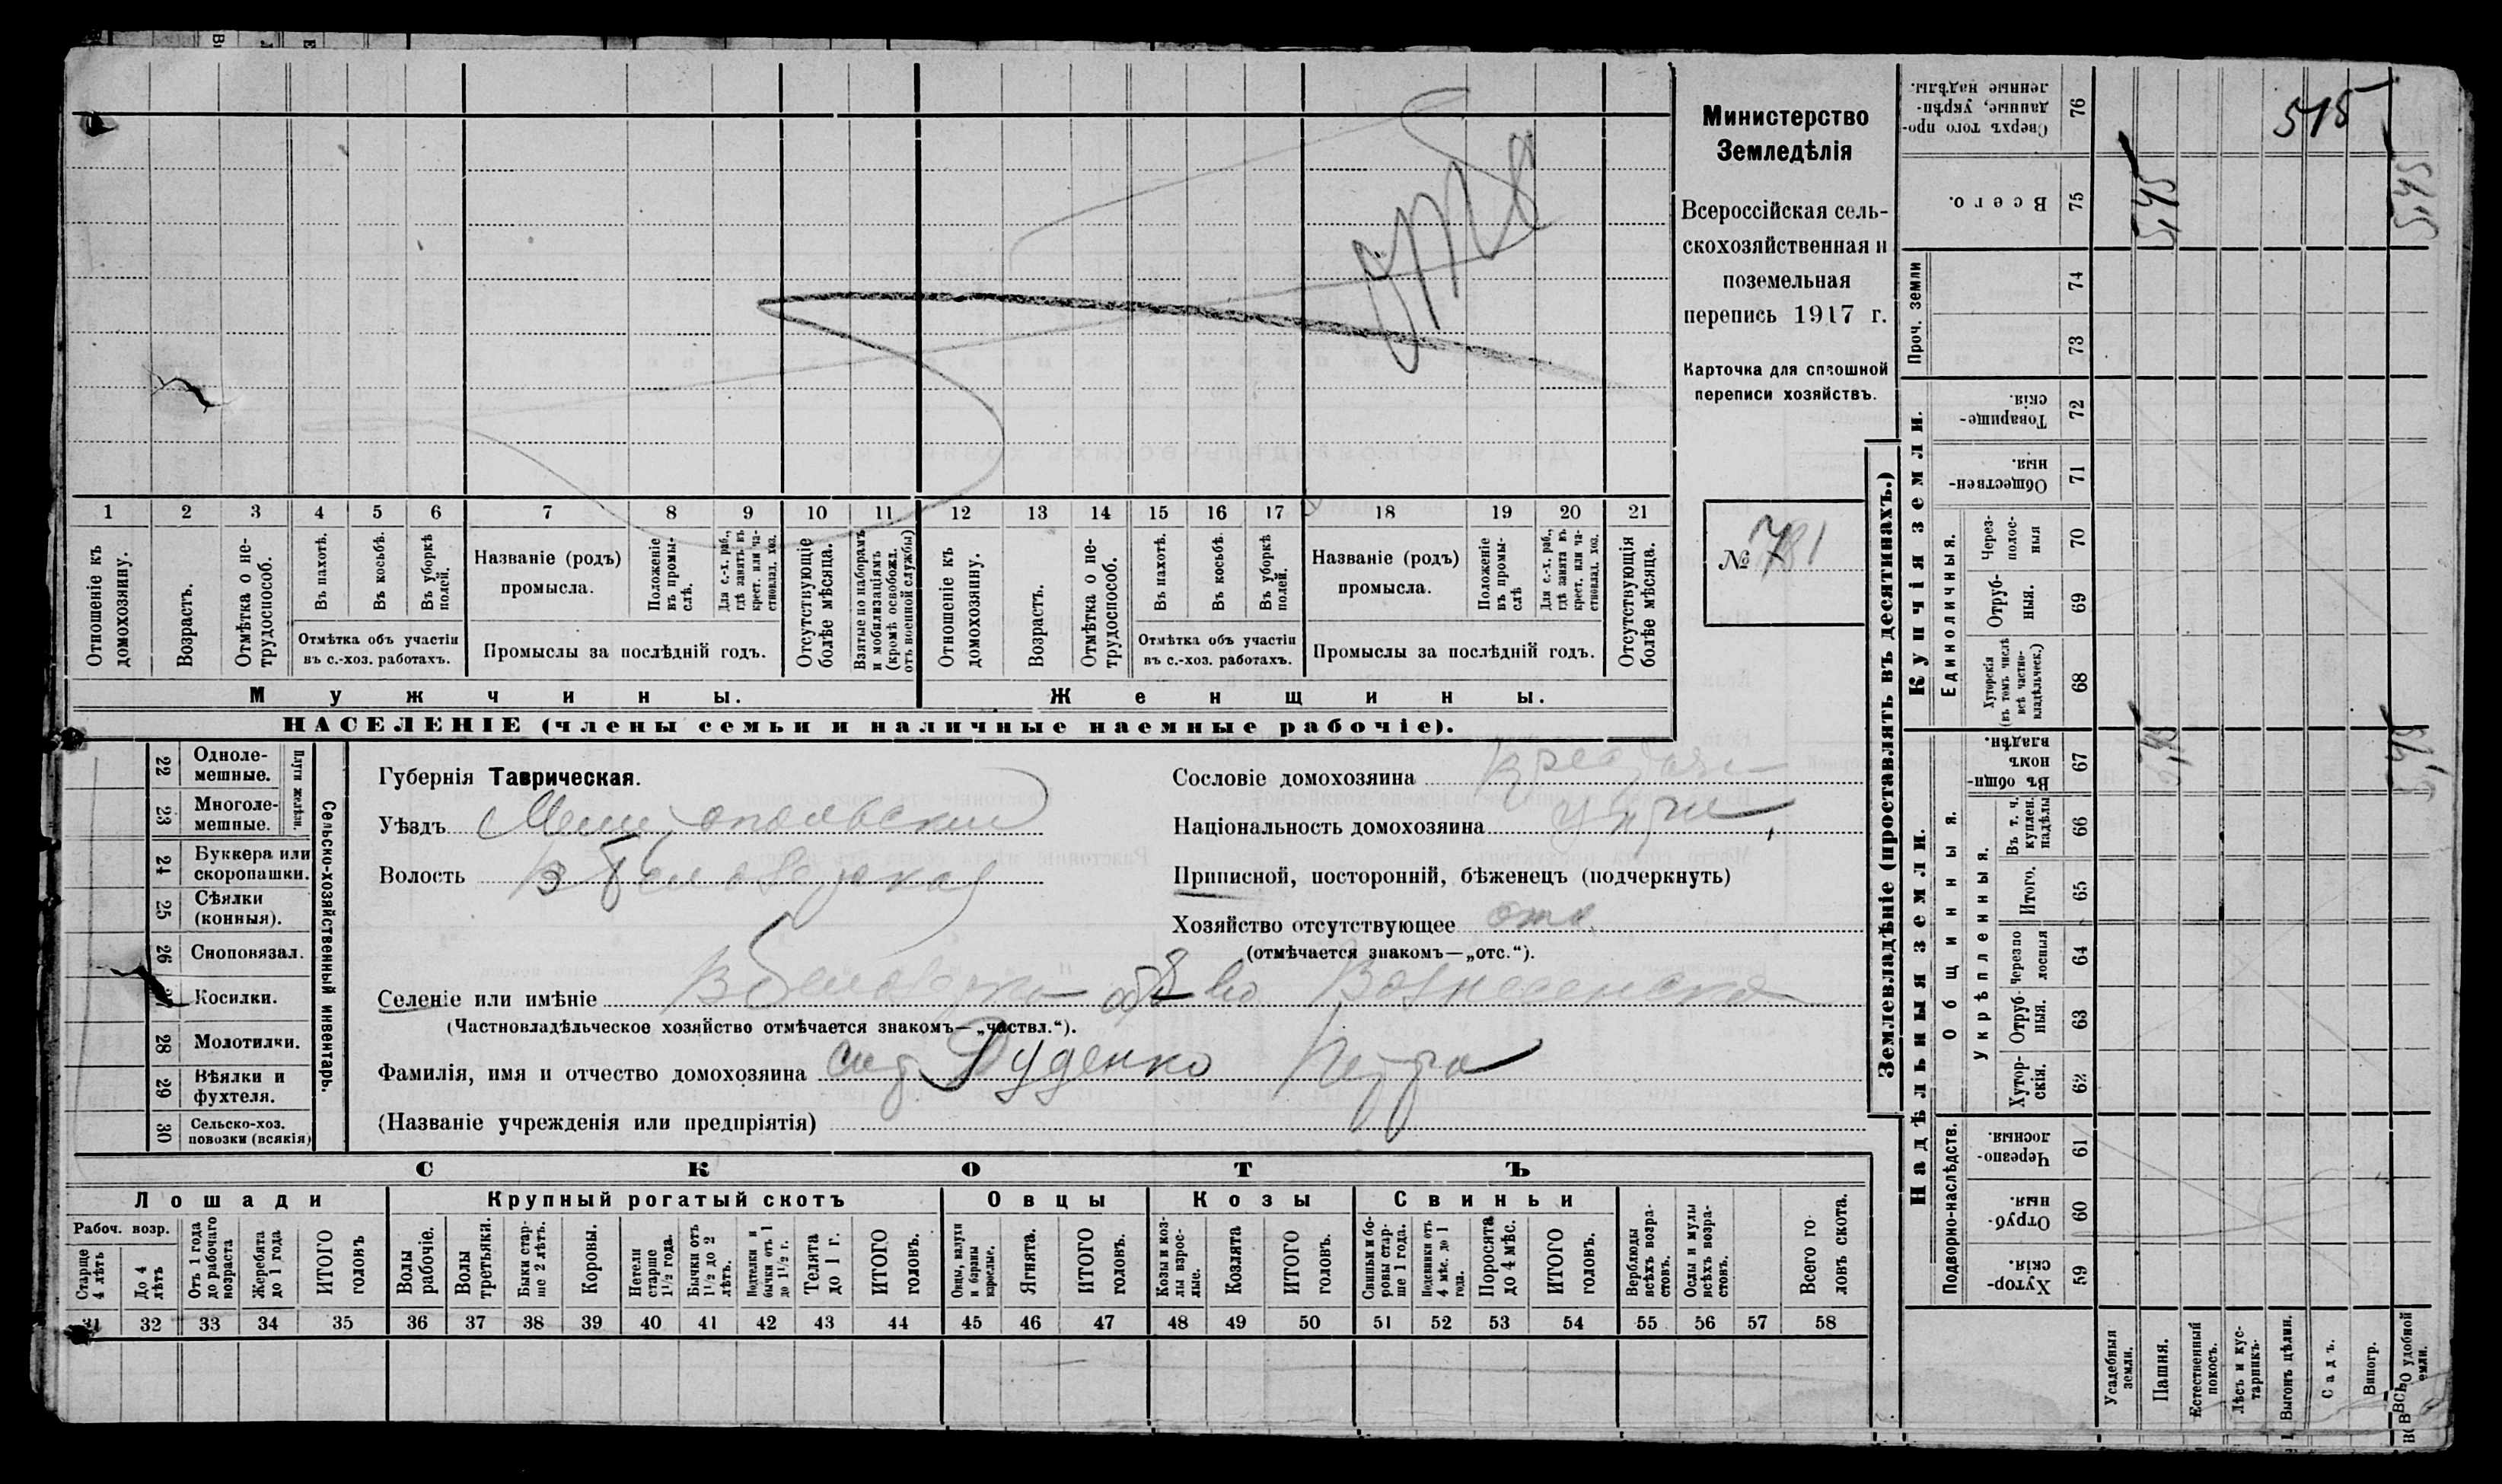 отс
Министерство
Земледѣлія
Всероссійская сель-
скохозяйственная и
поземельная
перепись 1917 г.
Карточка для сплошной
переписи хозяйствъ.
№ 781
1 2 3 4 5 6 7 8 9 10 11 12 13 14 15 16 17 18 19 20 21
Отношеніе къ домохозяину.
Возрастъ.
Отмѣтка о не-трудоспособ.
Въ пахотѣ.
Въ косьбѣ.
Въ уборкѣ полей.
Отмѣтка объ участіи
въ с.-хоз. работахъ.
Названіе (родъ)
промысла.
Положеніе въ промы-слѣ.
Для с.-х. раб., гдѣ занятъ въ крест. или ча-стновлад. хоз.
Промыслы за послѣдній годъ.
Отсутствующіе болѣе мѣсяца.
Взятые по наборамъ и мобилизаціямъ (кромѣ освобожд. отъ военной службы)
Отношеніе къ домохозяину.
Возрастъ.
Отмѣтка о не-трудоспособ.
Въ пахотѣ.
Въ косьбѣ.
Въ уборкѣ полей.
Отмѣтка объ участіи
въ с.-хоз. работахъ.
Названіе (родъ)
промысла.
Положеніе въ промы-слѣ
Для с.-х. раб., гдѣ занятъ въ крест. или ча-стновлад. хоз.
Промыслы за послѣдній годъ.
Отсутствующія болѣе мѣсяца.
Мужчины.
Женщины.
НАСЕЛЕНІЕ (члены семьи и наличные наемные рабочіе).
22 Одноле-мешные.
23 Многоле-мешные.
Плуги желѣзн.
24 Буккера или скоропашки.
25 Сѣялки (конныя).
26 Сноповязал.
27 Косилки.
28 Молотилки.
29 Вѣялки и фухтеля.
30 Сельско-хоз. повозки (всякія)
Сельско-хозяйственный инвентарь.
Губернія Таврическая.
Уѣздъ Мелитопольскій
Волость В Белозерская
Сословіе домохозяина
Національность домохозяина
Приписной, посторонній, бѣженецъ (подчеркнуть)
Хозяйство отсутствующее отс
(отмѣчается знакомъ—„отс.“).
Селеніе или имѣніе В Белозерка об-во Вознесенское
(Частновладѣльческое хозяйство отмѣчается знакомъ—„частвл.“).
Фамилія, имя и отчество домохозяина Руденко Петра
(Названіе учрежденія или предпріятія)
СКОТЪ
Лошади
Крупный рогатый скотъ
Овцы
Козы
Свиньи
Рабоч. возр.
Старше 4 лѣтъ
До 4 лѣтъ
Отъ 1 года до рабочаго возраста
Жеребята до 1 года
ИТОГО головъ
Волы рабочіе.
Волы третьяки.
Быки стар-ше 2 лѣтъ.
Коровы.
Нетели старше 1½ года.
Бычки отъ 1½ до 2 лѣтъ.
Подтелки и бычки отъ 1 до 1½ г.
Телята до 1 г.
ИТОГО головъ.
Овцы, валухи и бараны взрослые.
Ягнята.
ИТОГО головъ.
Козы и коз-лы взрос-лые.
Козлята
ИТОГО головъ.
Свиньи и бо-ровы стар-ше 1 года.
Подсвинки отъ 4 мѣс. до 1 года.
Поросята до 4 мѣс.
ИТОГО головъ.
Верблюды всѣхъ возра-стовъ.
Ослы и мулы всѣхъ возра-стовъ.
Всего го-ловъ скота.
31 32 33 34 35 36 37 38 39 40 41 42 43 44 45 46 47 48 49 50 51 52 53 54 55 56 57 58
Землевладѣніе (проставлять въ десятинахъ.)
Купчія земли.
Надѣльныя земли.
Сверхъ того про-данные, укрѣп-ленные надѣлы. 76
515
Всего. 75
5,45
5,45
Проч. земли
74
73
Товарище-скія. 72
Обществен-ныя. 71
Единоличныя.
Через-полос-ныя 70
Отруб-ныя. 69
Хуторскія (въ томъ числѣ всѣ частно-владѣльческ.) 68
Общинныя.
Въ общин-номъ владѣн. 67
5,45
5,45
Укрѣпленныя.
Въ т. ч. куплен. надѣлы 66
Итого. 65
Черезпо-лосныя 64
Отруб-ныя. 63
Хутор-скія. 62
Подворно-наслѣдств.
Черезпо-лосныя. 61
Отруб-ныя. 60
Хутор-скія. 59
Усадебныя земли.
Пашня.
Естественный покосъ.
Лѣсъ и кус-тарникъ.
Выгонъ цѣлин.
Садъ.
Виногр.